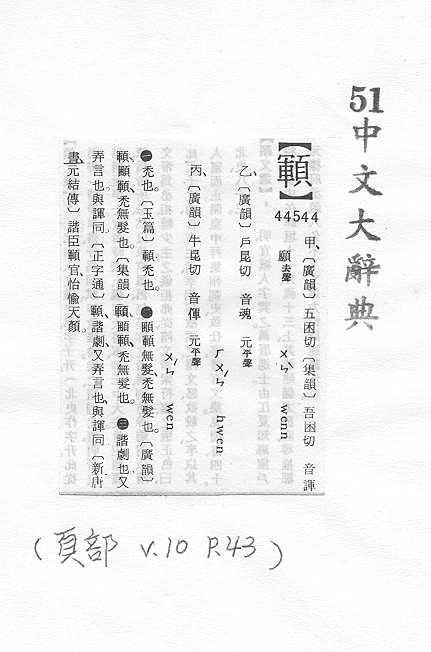 51中文大辭典
【顐】
44544
甲、〔廣韻〕五困切〔集韻〕吾困切 音諢
願去聲 ㄨㄣˋ wenn
乙、〔廣韻〕戶昆切 音魂 元平聲
ㄏㄨㄣˊ hwen
丙、〔廣韻〕牛昆切 音僤 元平聲
ㄨㄣˊ wen
㊀禿也。〔玉篇〕顐、禿也。㊁顐顐、無髮、禿無髮也。〔廣韻〕
顐、顐顐、禿無髮也。〔集韻〕顐、顐顐、禿無髮也。㊂諧劇也、又
弄言也、與諢同。〔正字通〕顐、諧劇、又弄言也、與諢同。〔新唐
書、元結傳〕諧臣顐官、怡愉天顏。
(頁部 V.10 P.43)